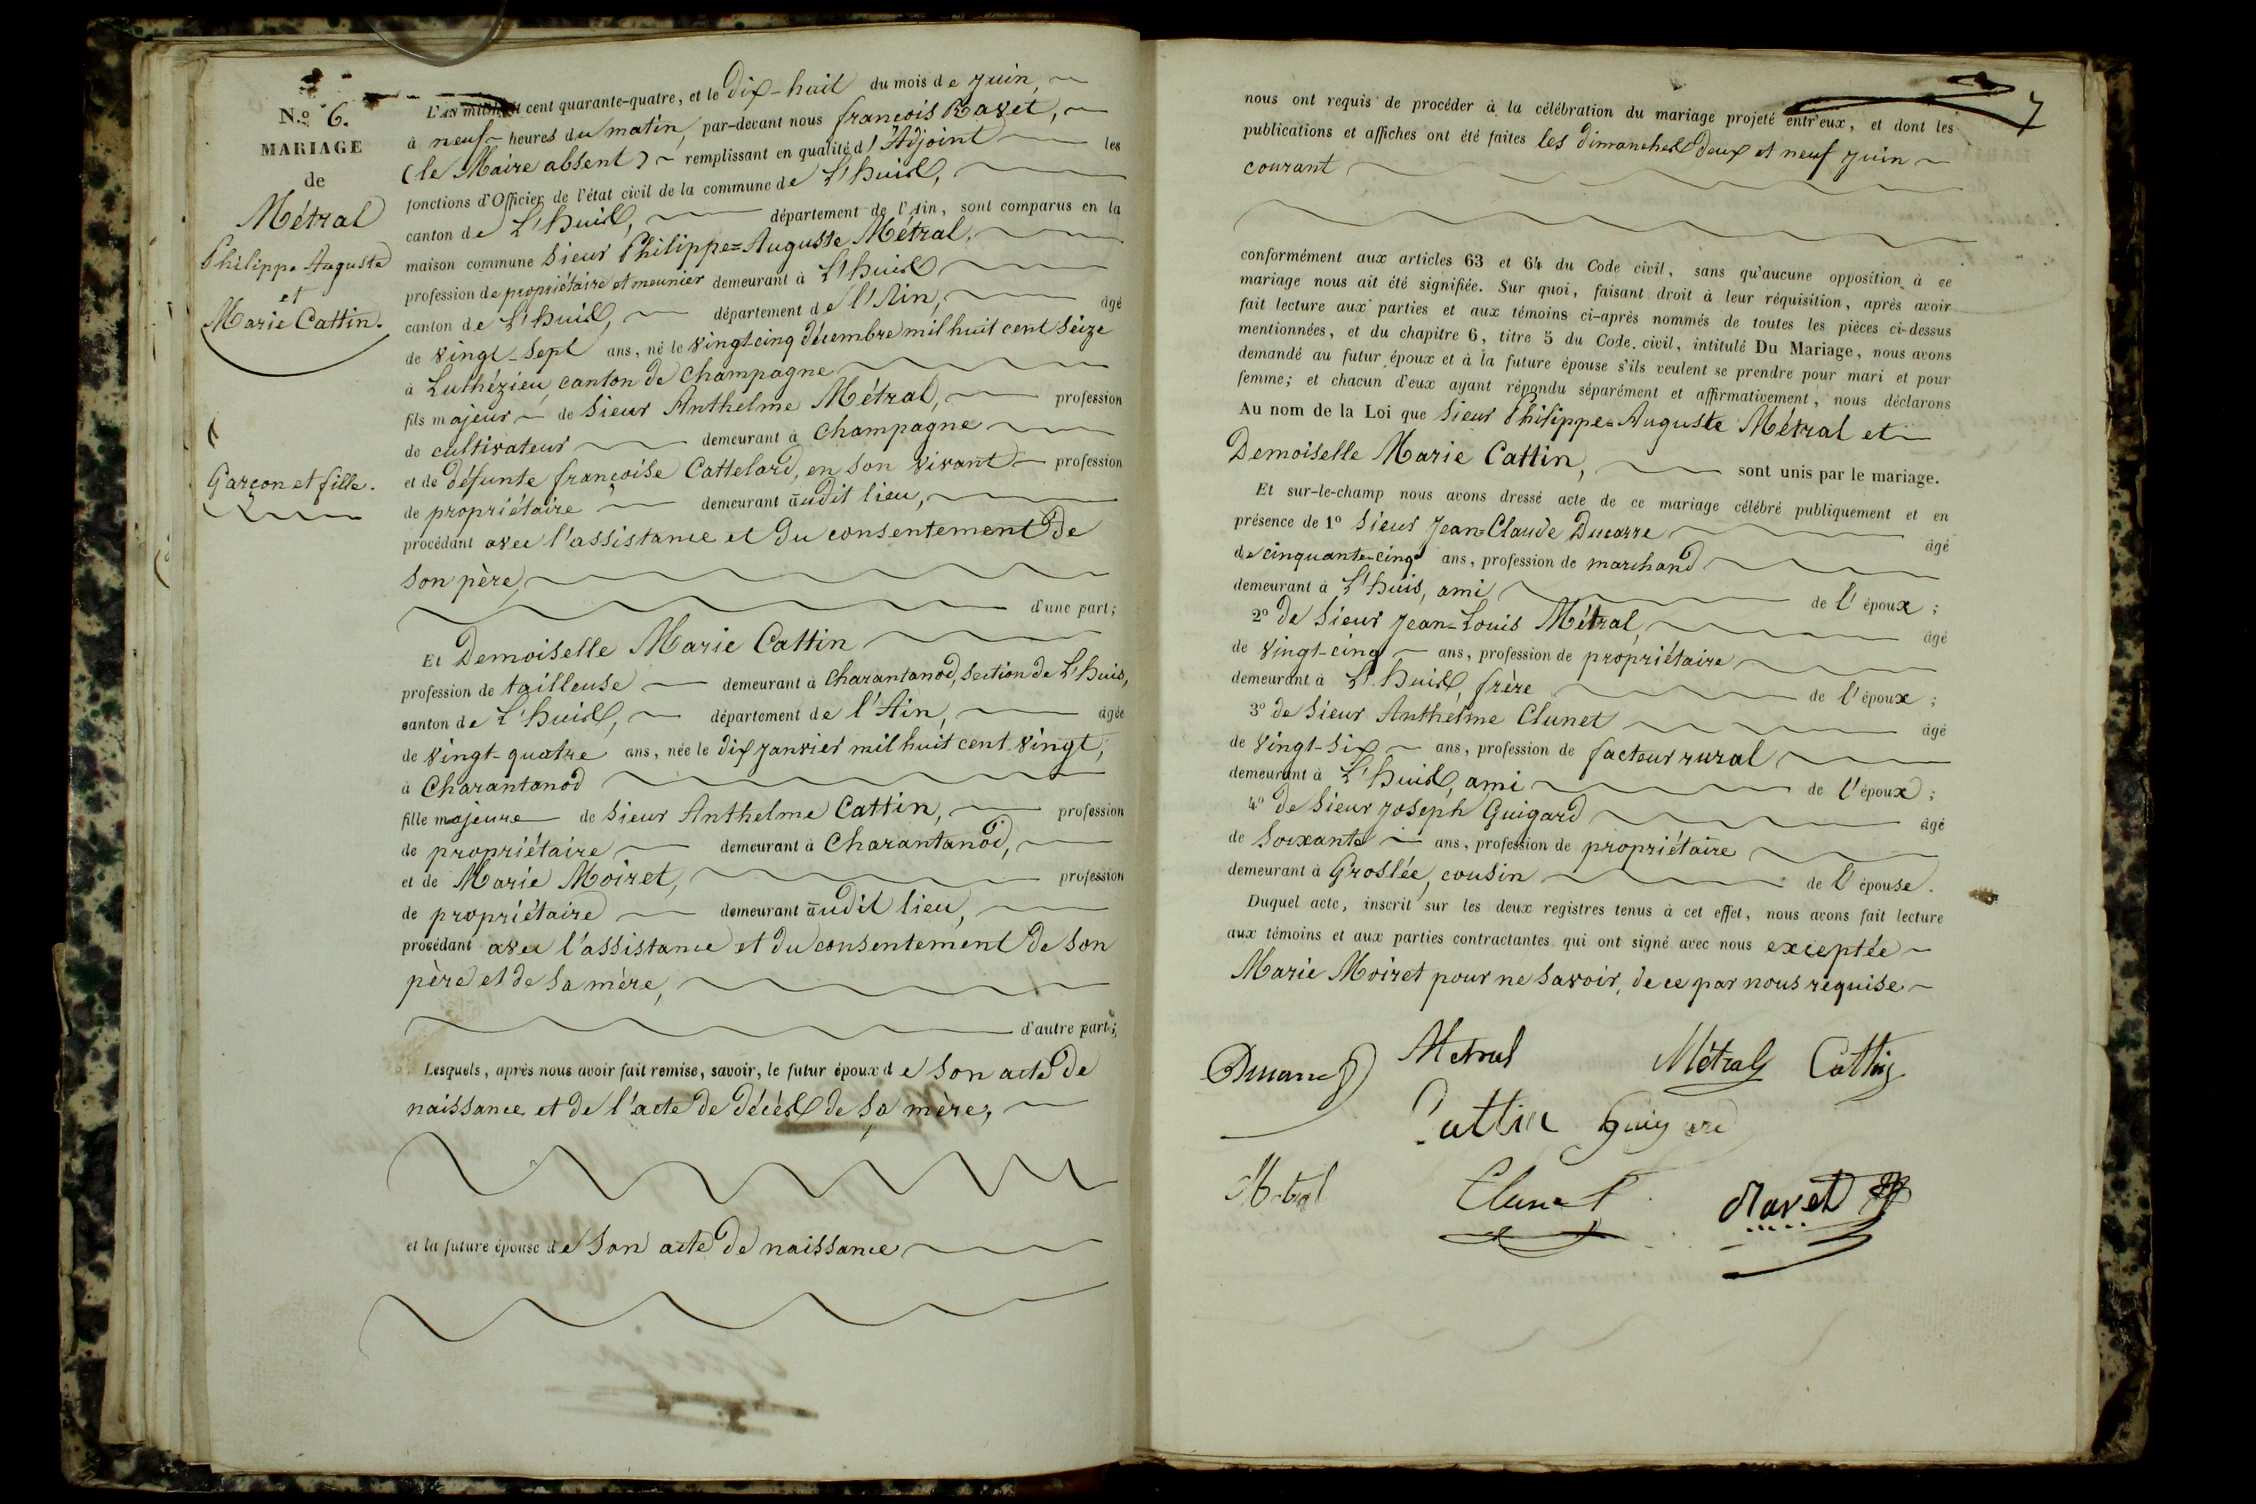 N.º 6.
MARIAGE
de
Métral
Philippe Auguste
et
Marie Cattin.
Garçon et fille.
L'AN mil huit cent quarante-quatre, et le Dix-huit du mois de Juin,
à neuf heures du matin, par-devant nous françois Ravet,
(le Maire absent) remplissant en qualité d'Adjoint les
fonctions d'Officier de l'état civil de la commune de L'huis,
canton de L'huis, département de l'Ain, sont comparus en la
maison commune Sieur Philippe=Auguste Métral,
profession de propriétaire et meunier demeurant à L'huis
canton de L'huis, département de l'Ain, âgé
de vingt-sept ans, né le vingt-cinq décembre mil huit cent seize
à Luthézieu, canton de Champagne
fils majeur de Sieur Anthelme Métral, profession
de cultivateur demeurant à Champagne
et de défunte françoise Cattelard, en son vivant profession
de propriétaire demeurant audit lieu,
procédant avec l'assistance et du consentement de
son père,
d'une part;
Et Demoiselle Marie Cattin
profession de tailleuse demeurant à Charantanod, section de L'huis,
canton de L'huis, département de l'Ain, âgée
de vingt-quatre ans, née le dix janvier mil huit cent vingt,
à Charantanod
fille majeure de Sieur Anthelme Cattin, profession
de propriétaire demeurant à Charantanod,
et de Marie Moiret, profession
de propriétaire demeurant audit lieu,
procédant avec l'assistance et du consentement de son
père et de sa mère,
d'autre part;
Lesquels, après nous avoir fait remise, savoir, le futur époux de son acte de
naissance et de l'acte de décès de sa mère,
et la future épouse de son acte de naissance
7
nous ont requis de procéder à la célébration du mariage projeté entr'eux, et dont les
publications et affiches ont été faites les dimanches deux et neuf juin
courant
conformément aux articles 63 et 64 du Code civil, sans qu'aucune opposition à ce
mariage nous ait été signifiée. Sur quoi, faisant droit à leur réquisition, après avoir
fait lecture aux parties et aux témoins ci-après nommés de toutes les pièces ci-dessus
mentionnées, et du chapitre 6, titre 5 du Code civil, intitulé Du Mariage, nous avons
demandé au futur époux et à la future épouse s'ils veulent se prendre pour mari et pour
femme; et chacun d'eux ayant répondu séparément et affirmativement, nous déclarons
Au nom de la Loi que Sieur Philippe=Auguste Métral et
Demoiselle Marie Cattin, sont unis par le mariage.
Et sur-le-champ nous avons dressé acte de ce mariage célébré publiquement et en
présence de 1º Sieur Jean=Claude Ducarre âgé
de cinquante-cinq ans, profession de marchand
demeurant à L'huis, ami de l'époux;
2º de Sieur Jean=Louis Métral, âgé
de vingt-cinq ans, profession de propriétaire
demeurant à L'huis, frère de l'époux;
3º de Sieur Anthelme Clunet âgé
de vingt-six ans, profession de facteur rural
demeurant à L'huis, ami de l'époux;
4º de Sieur Joseph Guigard âgé
de soixante ans, profession de propriétaire
demeurant à Groslée, cousin de l'épouse.
Duquel acte, inscrit sur les deux registres tenus à cet effet, nous avons fait lecture
aux témoins et aux parties contractantes qui ont signé avec nous exceptée
Marie Moiret pour ne savoir, de ce par nous requise
Metral Métral Cattin
Cattin Guigard
Métral Clunet Ravet